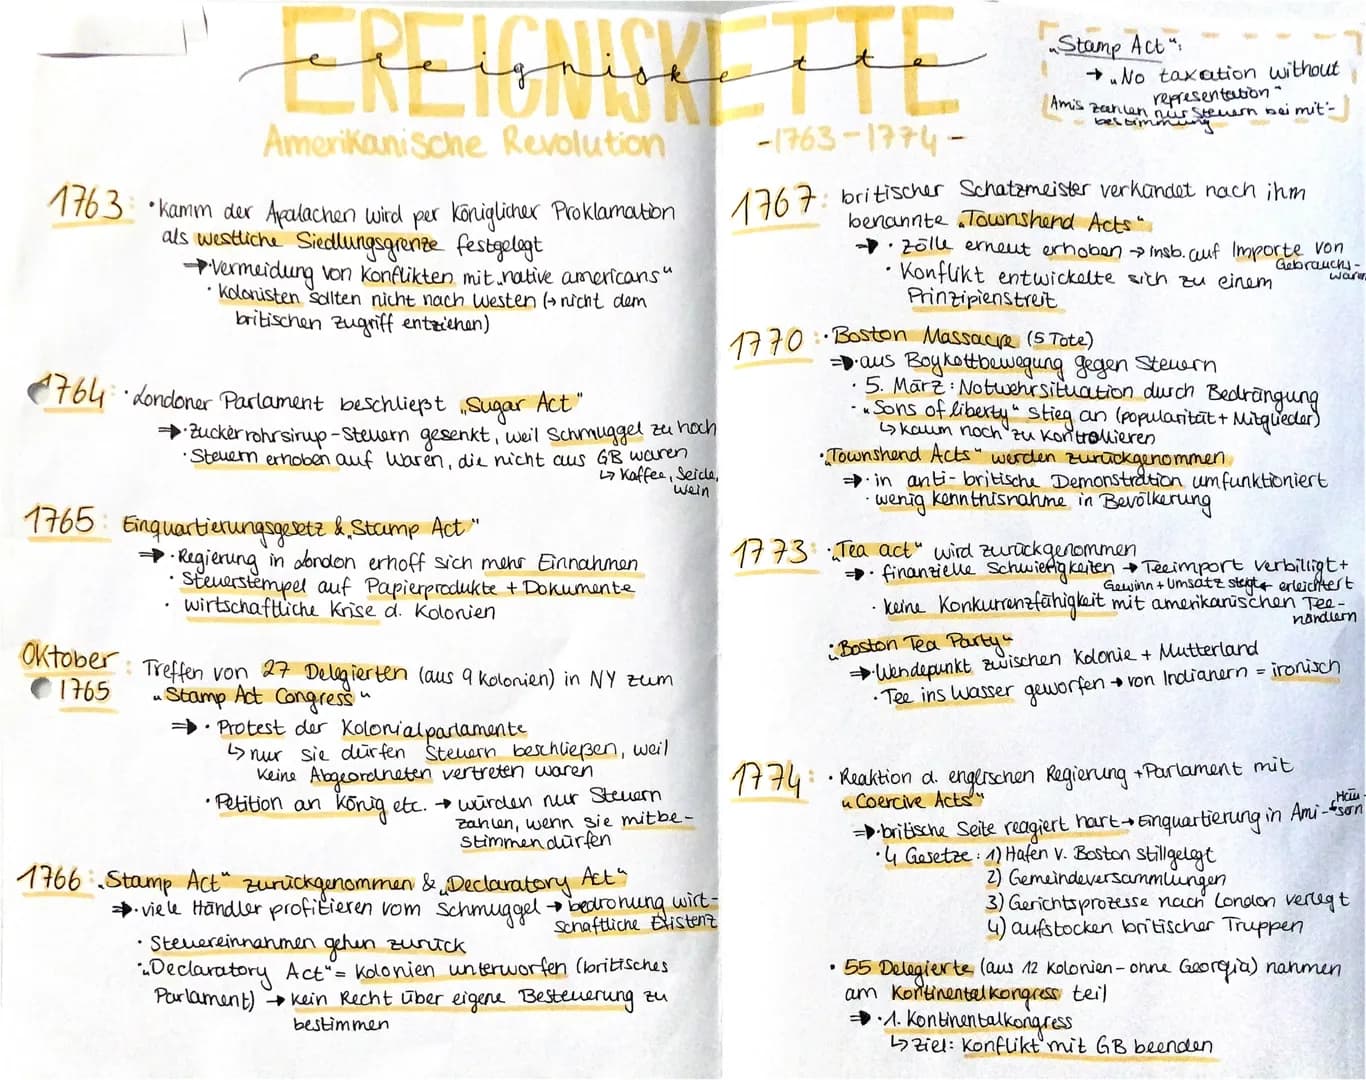 EREIGNISKETTE
ereigniskette
Amerikanische Revolution
-1763-1774-
„Stamp Act":
→ „No taxation without
representation"
Amis zahlen nur Steuern bei mit-
bestimmung
1763: • Kamm der Apalachen wird per königlicher Proklamation
als westliche Siedlungsgrenze festgelegt
→ • Vermeidung von Konflikten mit „native americans"
• Kolonisten sollten nicht nach Westen (→ nicht dem
britischen Zugriff entziehen)
1764: • Londoner Parlament beschließt „Sugar Act"
⇒ • Zuckerrohrsirup-Steuern gesenkt, weil Schmuggel zu hoch
• Steuern erhoben auf Waren, die nicht aus GB waren
↳ Kaffee, Seide,
Wein
1765: Einquartierungsgesetz & „Stamp Act"
⇒ • Regierung in London erhoff sich mehr Einnahmen
• Steuerstempel auf Papierprodukte + Dokumente
• wirtschaftliche Krise d. Kolonien
Oktober
1765: Treffen von 27 Delegierten (aus 9 Kolonien) in NY zum
„Stamp Act Congress"
⇒ • Protest der Kolonialparlamente
↳ nur sie dürfen Steuern beschließen, weil
keine Abgeordneten vertreten waren
• Petition an König etc. → würden nur Steuern
zahlen, wenn sie mitbe-
stimmen dürfen
1766: „Stamp Act" zurückgenommen & „Declaratory Act"
⇒ • viele Händler profitieren vom Schmuggel → bedrohung wirt-
schaftliche Existenz
• Steuereinnahmen gehen zurück
• „Declaratory Act" = Kolonien unterworfen (britisches
Parlament) → kein Recht über eigene Besteuerung zu
bestimmen
1767: britischer Schatzmeister verkündet nach ihm
benannte „Townshend Acts"
⇒ • Zölle erneut erhoben → insb. auf Importe von
Gebrauchs-
waren
• Konflikt entwickelte sich zu einem
Prinzipienstreit
1770: • Boston Massacre (5 Tote)
⇒ • aus Boykottbewegung gegen Steuern
• 5. März: Notwehrsituation durch Bedrängung
• „Sons of liberty" stieg an (popularität + Mitglieder)
↳ kaum noch zu kontrollieren
• „Townshend Acts" werden zurückgenommen
⇒ • in anti-britische Demonstration umfunktioniert
• wenig kenntnisnahme in Bevölkerung
1773: • „Tea act" wird zurückgenommen
⇒ • finanzielle Schwierigkeiten → Teeimport verbilligt +
Gewinn + Umsatz steigt ← erleichtert
• keine Konkurrenzfähigkeit mit amerikanischen Tee-
händlern
• „Boston Tea Party"
⇒ • Wendepunkt zwischen Kolonie + Mutterland
• Tee ins Wasser geworfen → von Indianern = ironisch
1774: • Reaktion d. englischen Regierung + Parlament mit
„Coercive Acts"
⇒ • britische Seite reagiert hart → Einquartierung in Ami-Häu-
sern
• 4 Gesetze: 1) Hafen v. Boston stillgelegt
2) Gemeindeversammlungen
3) Gerichtsprozesse nach London verlegt
4) aufstocken britischer Truppen
• 55 Delegierte (aus 12 Kolonien - ohne Georgia) nahmen
am Kontinentalkongress teil
⇒ • 1. Kontinentalkongress
↳ Ziel: Konflikt mit GB beenden